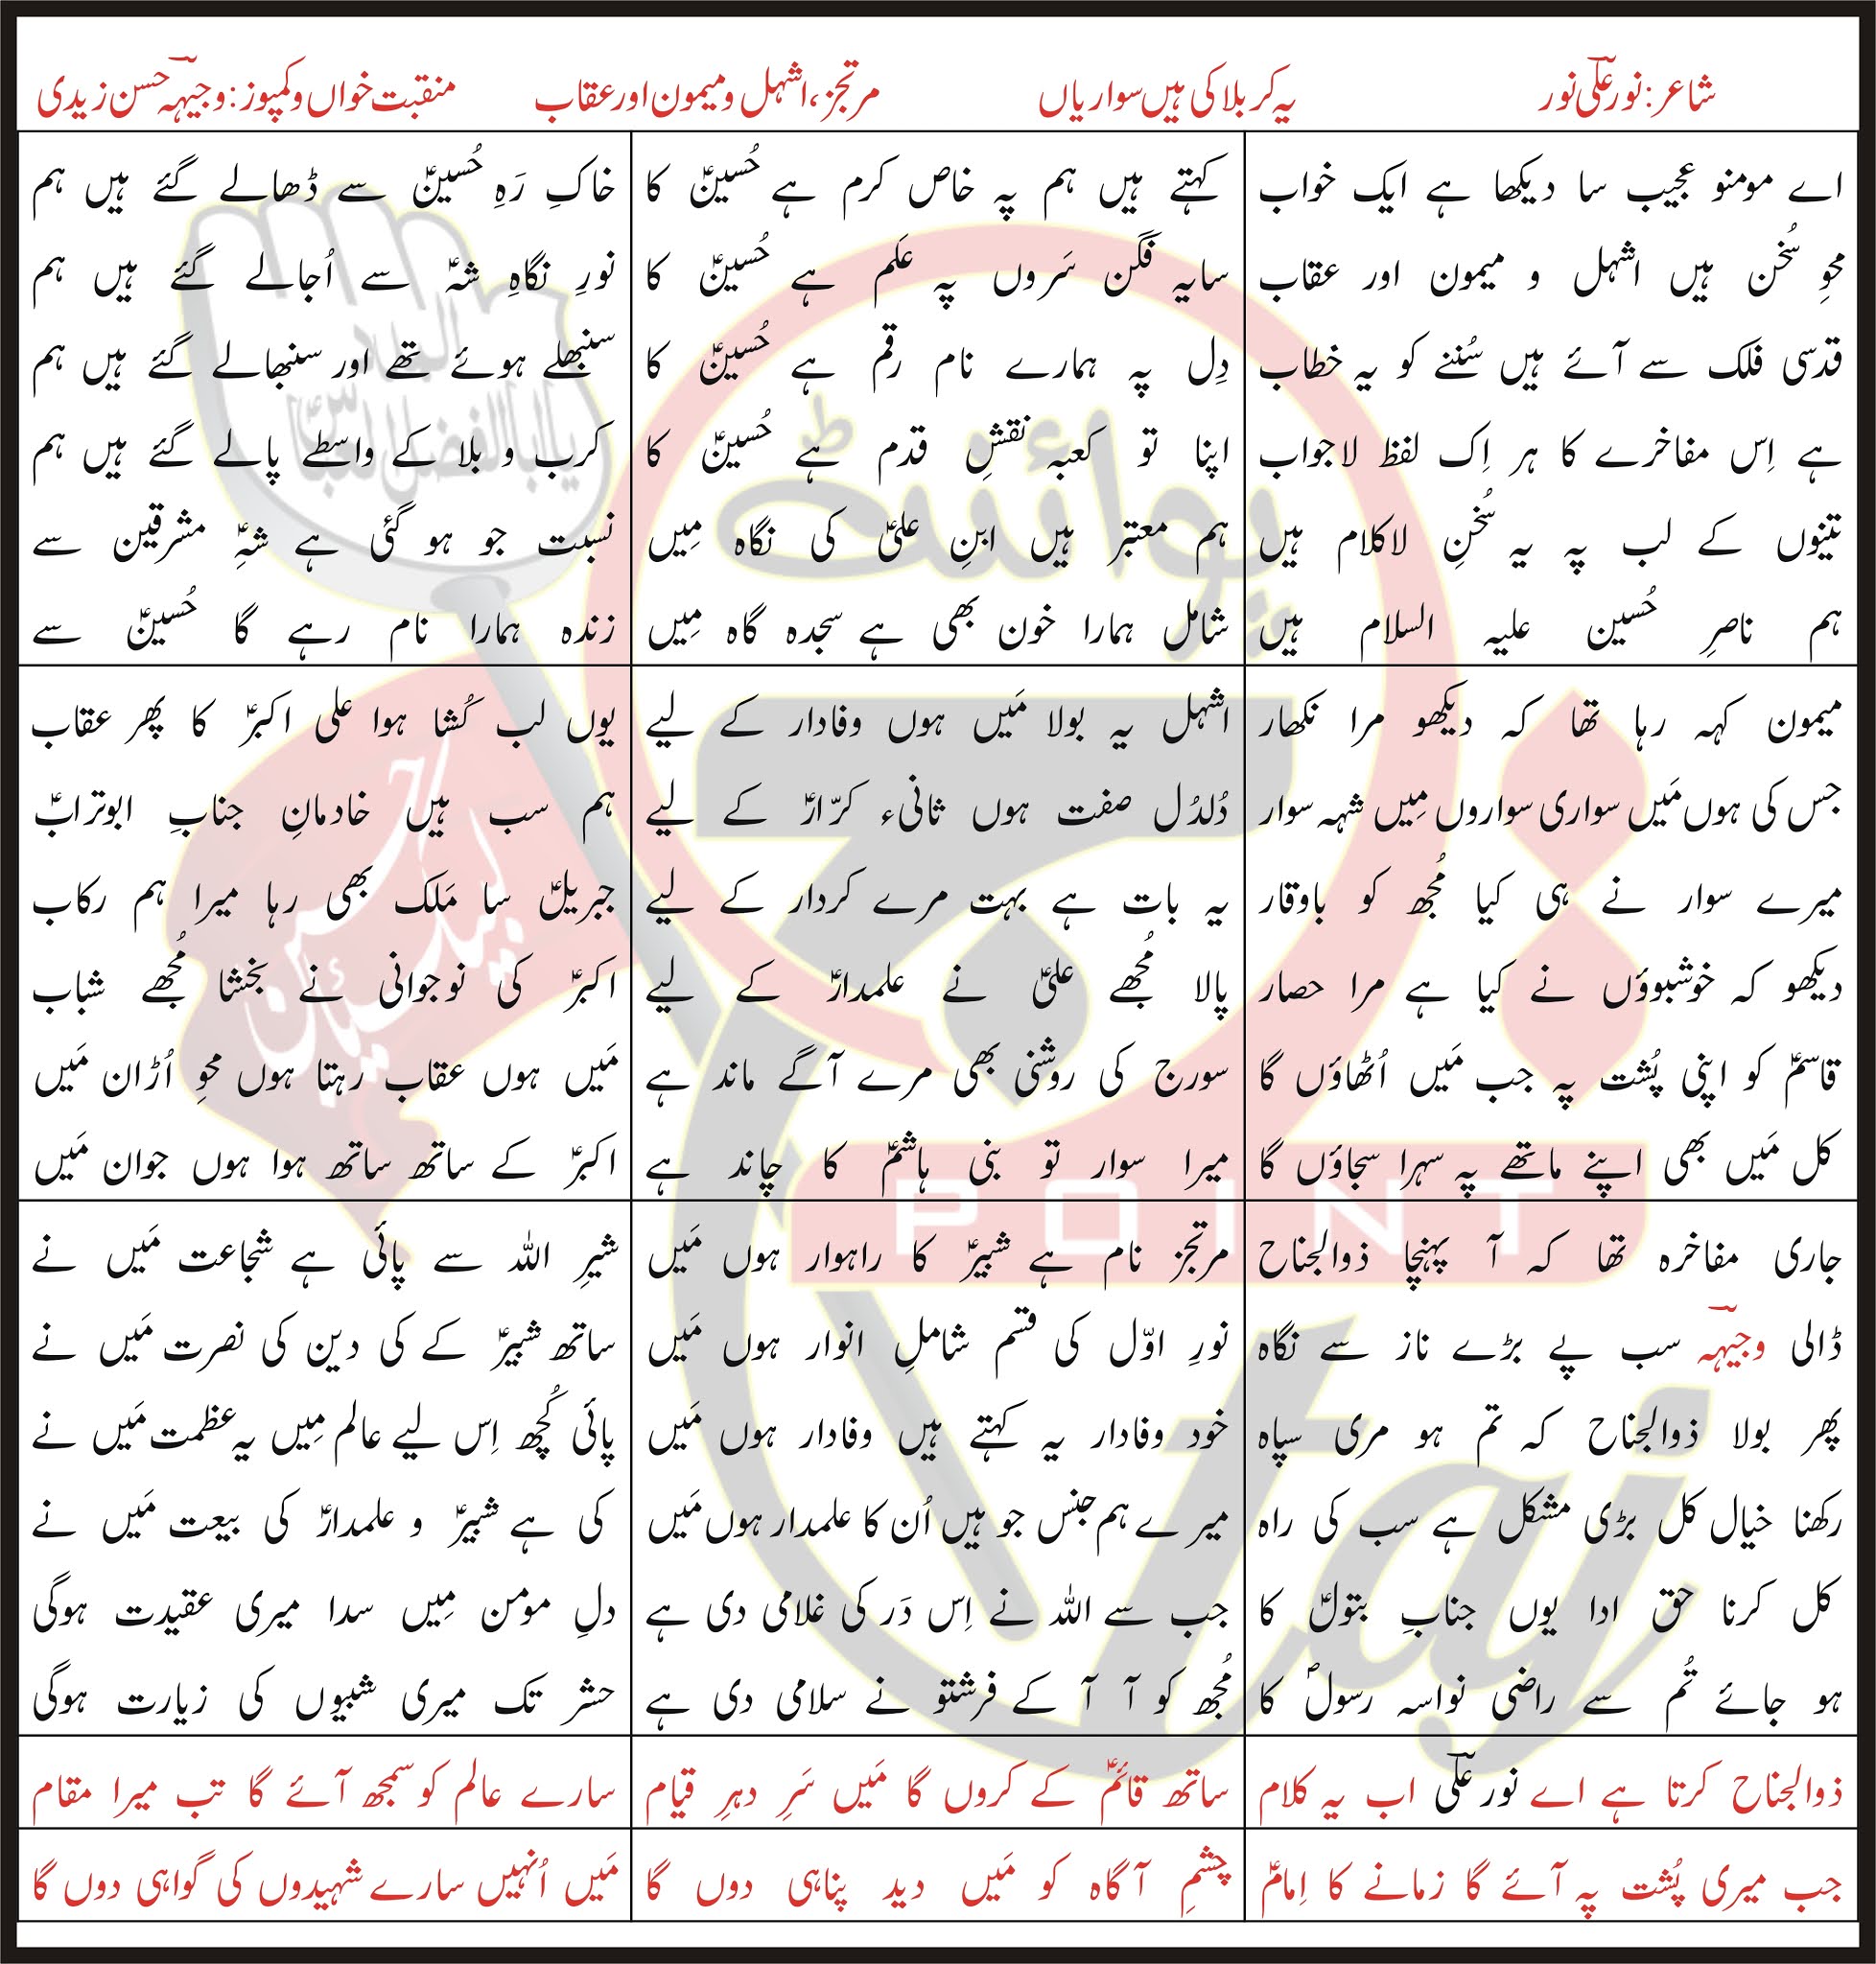 شاعر: نور علی نور
یہ کربلا کی ہیں سواریاں
مرتجز، اشہل و میمون اور عقاب
منقبت خواں و کمپوز: وجیہہ حسن زیدی
اے مومنو عجیب سا دیکھا ہے ایک خواب
محوِ سُخن ہیں اشہل و میمون اور عقاب
قدسی فلک سے آئے ہیں سُننے کو یہ خطاب
ہے اِس مفاخرے کا ہر اِک لفظ لاجواب
تینوں کے لب پہ یہ سُخنِ لاکلام ہیں
ہم ناصرِ حُسین علیہ السلام ہیں
کہتے ہیں ہم پہ خاص کرم ہے حُسینؑ کا
سایہ فگن سَروں پہ عَلم ہے حُسینؑ کا
دِل پہ ہمارے نام رقم ہے حُسینؑ کا
اپنا تو کعبہ نقشِ قدم ہے حُسینؑ کا
ہم معتبر ہیں ابنِ علیؑ کی نگاہ مِیں
شامل ہمارا خون بھی ہے سجدہ گاہ مِیں
خاکِ رَہِ حُسینؑ سے ڈھالے گئے ہیں ہم
نورِ نگاہِ شہؑ سے اُجالے گئے ہیں ہم
سنبھلے ہوئے تھے اور سنبھالے گئے ہیں ہم
کرب و بلا کے واسطے پالے گئے ہیں ہم
نسبت جو ہو گئی ہے شہِؑ مشرقین سے
زندہ ہمارا نام رہے گا حُسینؑ سے
میمون کہہ رہا تھا کہ دیکھو مرا نکھار
جس کی ہوں مَیں سواری سواروں مِیں شہہ سوار
میرے سوار نے ہی کیا مُجھ کو باوقار
دیکھو کہ خوشبوؤں نے کیا ہے مرا حصار
قاسمؑ کو اپنی پُشت پہ جب مَیں اُٹھاؤں گا
کل مَیں بھی اپنے ماتھے پہ سہرا سجاؤں گا
اشہل یہ بولا مَیں ہوں وفادار کے لیے
دُلدُل صفت ہوں ثانیء کرّارؑ کے لیے
یہ بات ہے بہت مرے کردار کے لیے
پالا مُجھے علیؑ نے علمدارؑ کے لیے
سورج کی روشنی بھی مرے آگے ماند ہے
میرا سوار تو بنی ہاشمؑ کا چاند ہے
یوں لب کُشا ہوا علی اکبرؑ کا پھر عقاب
ہم سب ہیں خادمانِ جنابِ ابوترابؑ
جبریلؑ سا مَلک بھی رہا میرا ہم رکاب
اکبرؑ کی نوجوانی نے بخشا مُجھے شباب
مَیں ہوں عقاب رہتا ہوں محوِ اُڑان مَیں
اکبرؑ کے ساتھ ساتھ ہوا ہوں جوان مَیں
جاری مفاخرہ تھا کہ آ پہنچا ذوالجناح
ڈالی وجیہہ سب پے بڑے ناز سے نگاہ
پھر بولا ذوالجناح کہ تم ہو مری سپاہ
رکھنا خیال کل بڑی مشکل ہے سب کی راہ
کل کرنا حق ادا یوں جنابِ بتولؑ کا
ہو جائے تُم سے راضی نواسہ رسولؐ کا
مرتجز نام ہے شبیرؑ کا راہوار ہوں مَیں
نورِ اوّل کی قسم شاملِ انوار ہوں مَیں
خود وفادار یہ کہتے ہیں وفادار ہوں مَیں
میرے ہم جنس جو ہیں اُن کا علمدار ہوں مَیں
جب سے اللہ نے اِس دَر کی غلامی دی ہے
مُجھ کو آ آ کے فرشتو نے سلامی دی ہے
شیرِ اللہ سے پائی ہے شجاعت مَیں نے
ساتھ شبیرؑ کے کی دین کی نصرت مَیں نے
پائی کُچھ اِس لیے عالم مِیں یہ عظمت مَیں نے
کی ہے شبیرؑ و علمدارؑ کی بیعت مَیں نے
دلِ مومن مِیں سدا میری عقیدت ہوگی
حشر تک میری شبیوں کی زیارت ہوگی
ذوالجناح کرتا ہے اے نور علی اب یہ کلام
ساتھ قائمؑ کے کروں گا مَیں سَرِ دہرِ قیام
سارے عالم کو سمجھ آئے گا تب میرا مقام
جب میری پُشت پہ آئے گا زمانے کا اِمامؑ
چشمِ آگاہ کو مَیں دید پناہی دوں گا
مَیں اُنہیں سارے شہیدوں کی گواہی دوں گا
پوائنٹ
POINT
Taj
یا ابالفضل العباسؑ
لبیک یا حسینؑ